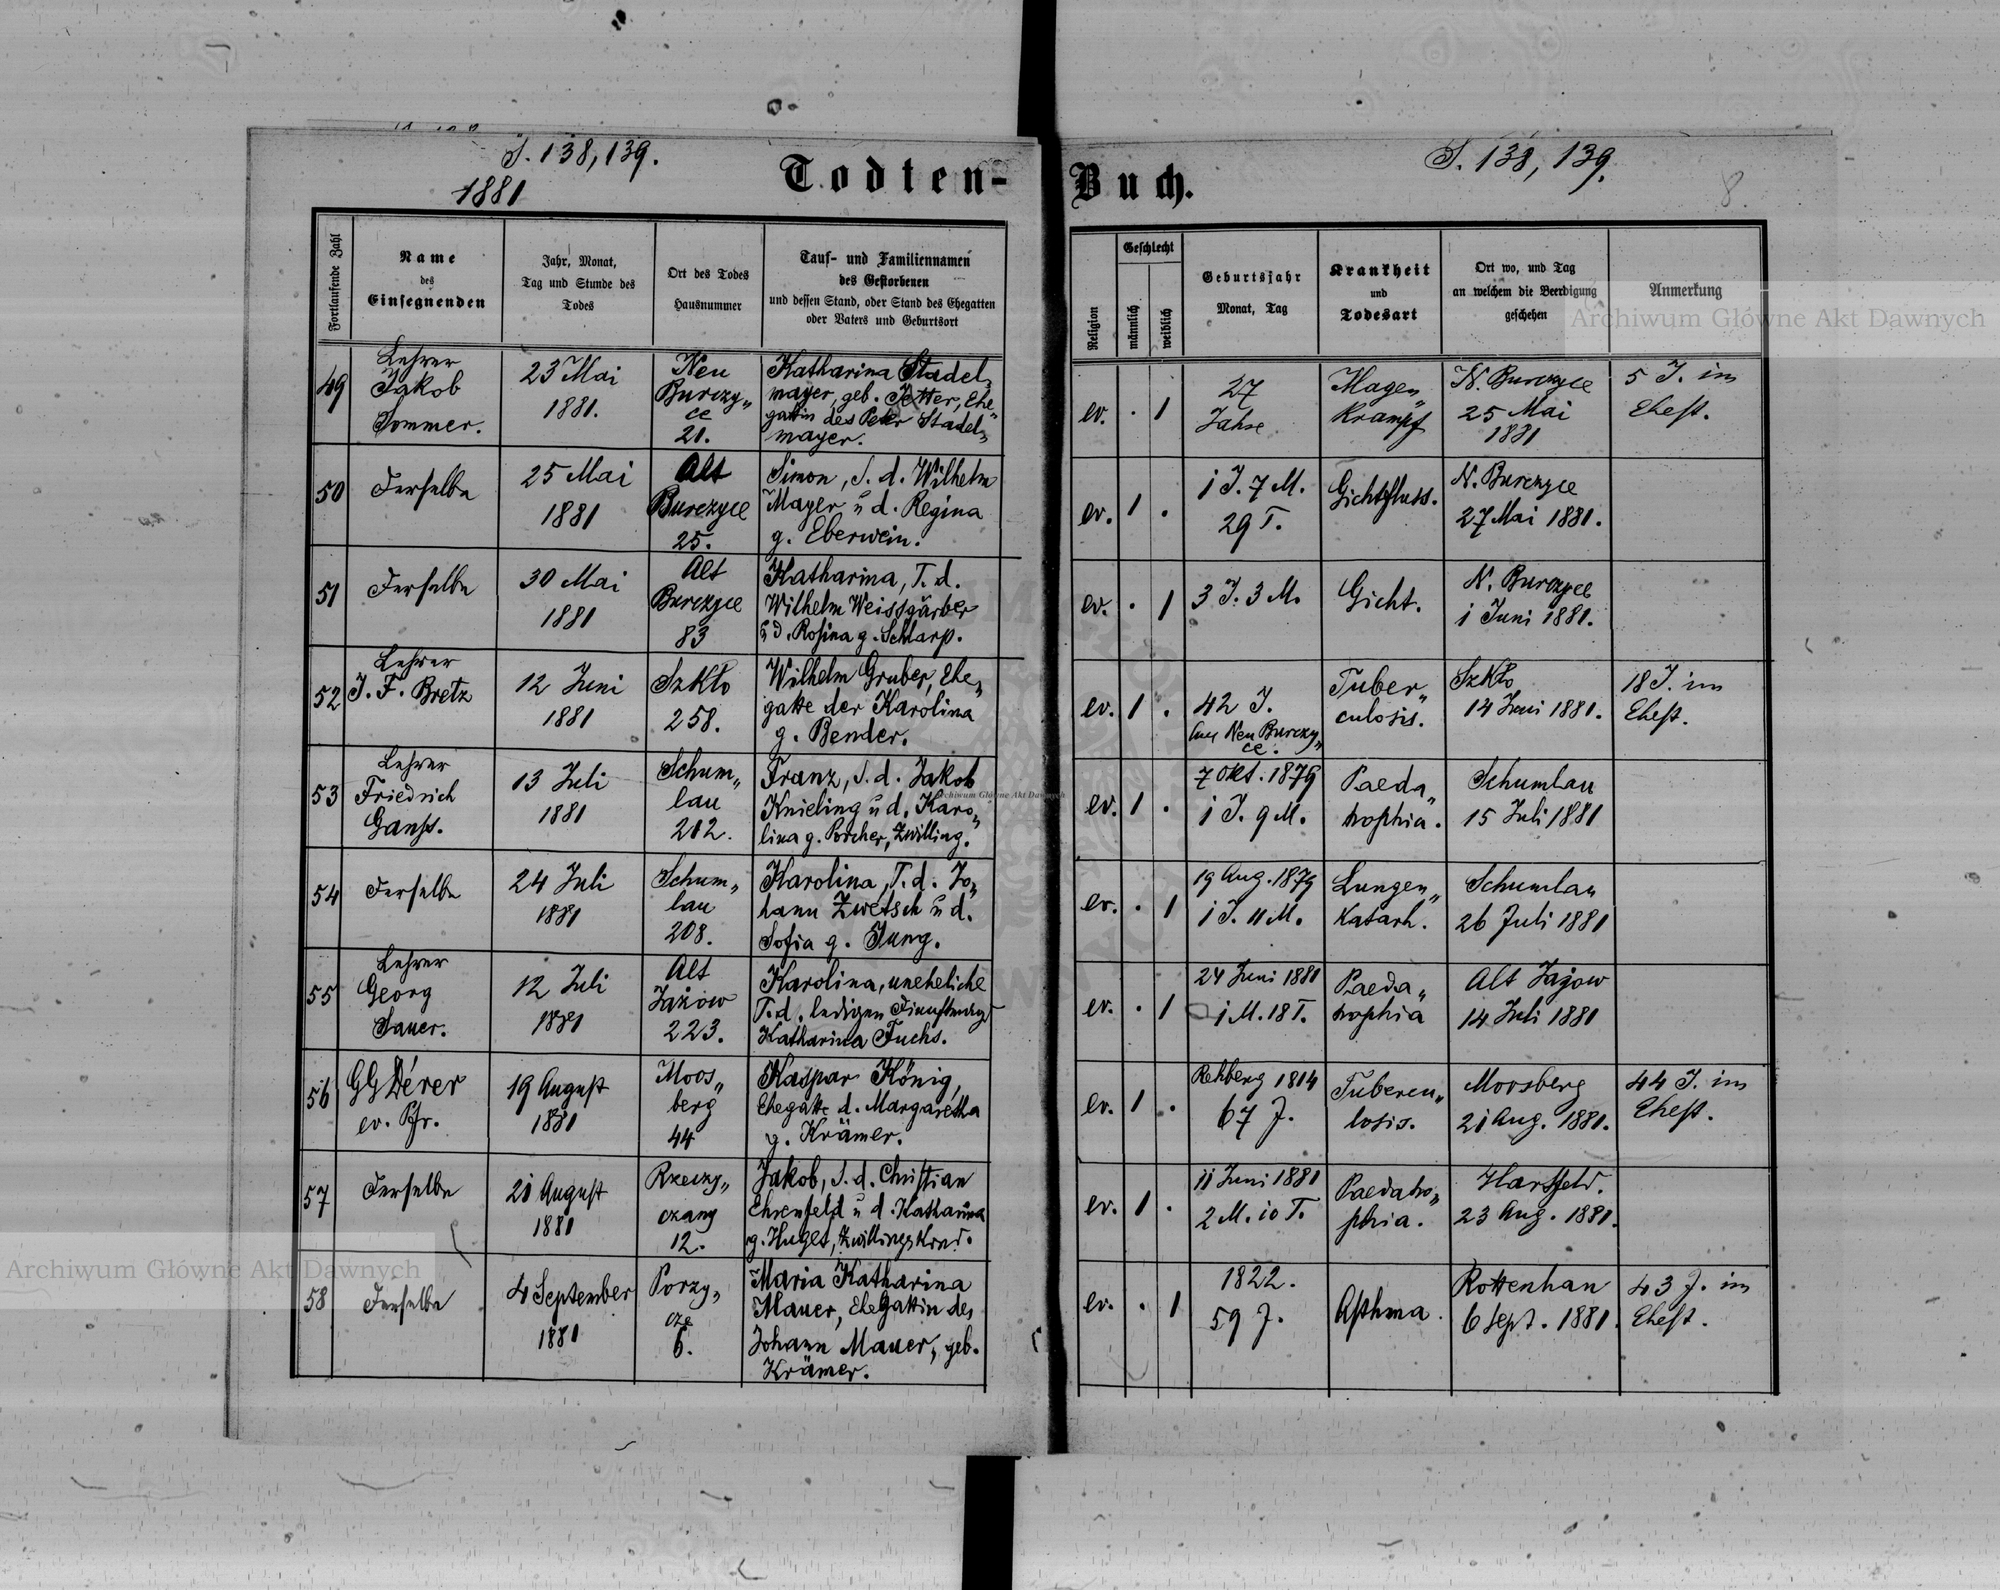 S. 138, 139.
1881
Todten-
Buch.
S. 138, 139.
8.
Fortlaufende Zahl
Name
des
Einsegnenden
Jahr, Monat,
Tag und Stunde des
Todes
Ort des Todes
Hausnummer
Tauf- und Familiennamen
des Gestorbenen
und dessen Stand, oder Stand des Ehegatten
oder Vaters und Geburtsort
Religion
Geschlecht
männlich
weiblich
Geburtsjahr
Monat, Tag
Krankheit
und
Todesart
Ort wo, und Tag
an welchem die Beerdigung
geschehen
Anmerkung
Archiwum Główne Akt Dawnych
49
Lehrer
Jakob
Sommer.
23 Mai
1881.
Neu
Burczy„
ce
21.
Katharina Stadel„
mayer, geb. Jetter, Ehe„
gattin des Peter Stadel„
mayer.
ev. . 1
27
Jahre
Magen„
krampf
N. Burczyce
25 Mai
1881
5 J. im
Ehest.
50
Derselbe
25 Mai
1881
Alt
Burczyce
25.
Simon, S. d. Wilhelm
Mayer u d. Regina
g. Eberwein.
ev. 1 .
1 J. 7 M.
29 T.
Gichtfluss.
N. Burczyce
27 Mai 1881.
51
Derselbe
30 Mai
1881
Alt
Burczyce
83
Katharina, T. d.
Wilhelm Weissgärber
u d. Rosina g. Schlarp.
ev. . 1
3 J. 3 M.
Gicht.
N. Burczyce
1 Juni 1881.
52
Lehrer
J. F. Bretz
12 Juni
1881
Szkło
258.
Wilhelm Gruber, Ehe„
gatte der Karolina
g. Bender.
ev. 1 .
42 J.
aus Neu Burczy„
ce.
Tuber„
culosis.
Szkło
14 Juni 1881.
18 J. im
Ehest.
53
Lehrer
Friedrich
Ganss.
13 Juli
1881
Schum„
lau
202.
Franz, S. d. Jakob
Knieling u d. Karo„
lina g. Porcher, Zwilling.
ev. 1 .
7 Okt. 1879
1 J. 9 M.
Paeda„
trophia.
Schumlau
15 Juli 1881
Archiwum Główne Akt Dawnych
54
Derselbe
24 Juli
1881
Schum„
lau
208.
Karolina, T. d. Jo„
hann Zwetsch u d.
Sofia g. Jung.
ev. . 1
19 Aug. 1879
1 J. 11 M.
Lungen„
Katarh.
Schumlau
26 Juli 1881
55
Lehrer
Georg
Sauer.
12 Juli
1881
Alt
Jażow
223.
Karolina, uneheliche
T. d. ledigen Dienstmagd
Katharina Fuchs.
ev. . 1
24 Juni 1881
1 M. 18 T.
Paeda„
trophia
Alt Jażow
14 Juli 1881
56
GGDérer
ev. Pfr.
19 August
1881
Moos„
berg
44
Kaspar König,
Ehegatte d. Margaretha
g. Krämer.
ev. 1 .
Rehberg 1814
67 J.
Tubercu„
losis.
Moosberg
21 Aug. 1881.
44 J. im
Ehest.
57
Derselbe
21 August
1881
Rzeczy„
czany
12.
Jakob, S. d. Christian
Ehrenfeld u d. Katharina
g. Huget, Zwillingskind.
ev. 1 .
11 Juni 1881
2 M. 10 T.
Paedatro„
phia.
Hartfeld.
23 Aug. 1881.
58
Derselbe
4 September
1881
Porzy„
cze
6.
Maria Katharina
Mauer, EheGattin des
Johann Mauer, geb.
Krämer.
ev. . 1
1822.
59 J.
Asthma.
Rottenhan
6 Sept. 1881.
43 J. im
Ehest.
Archiwum Główne Akt Dawnych